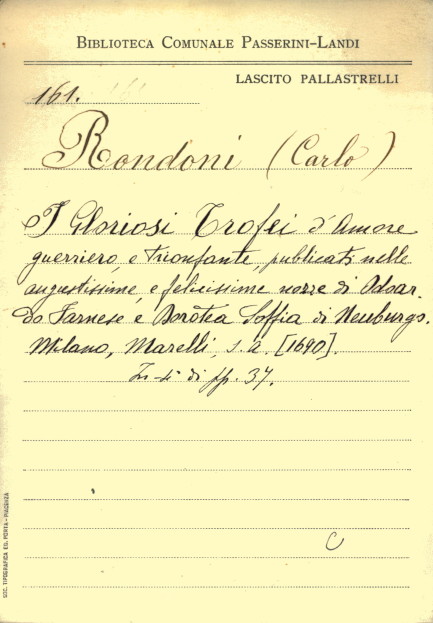 BIBLIOTECA COMUNALE PASSERINI-LANDI
LASCITO PALLASTRELLI
161. 161
Rondoni (Carlo)
I Gloriosi Trofei d'Amore
guerriero, e trionfante, publicati nelle
augustissime, e felicissime nozze di Odoar-
do Farnese e Dorotea Soffia di Neuburgo.
Milano, Marelli, s. a. [1690].
In-4° di pp. 37.
C
STC. TIPOGRAFICA ED. PORTA - PIACENZA